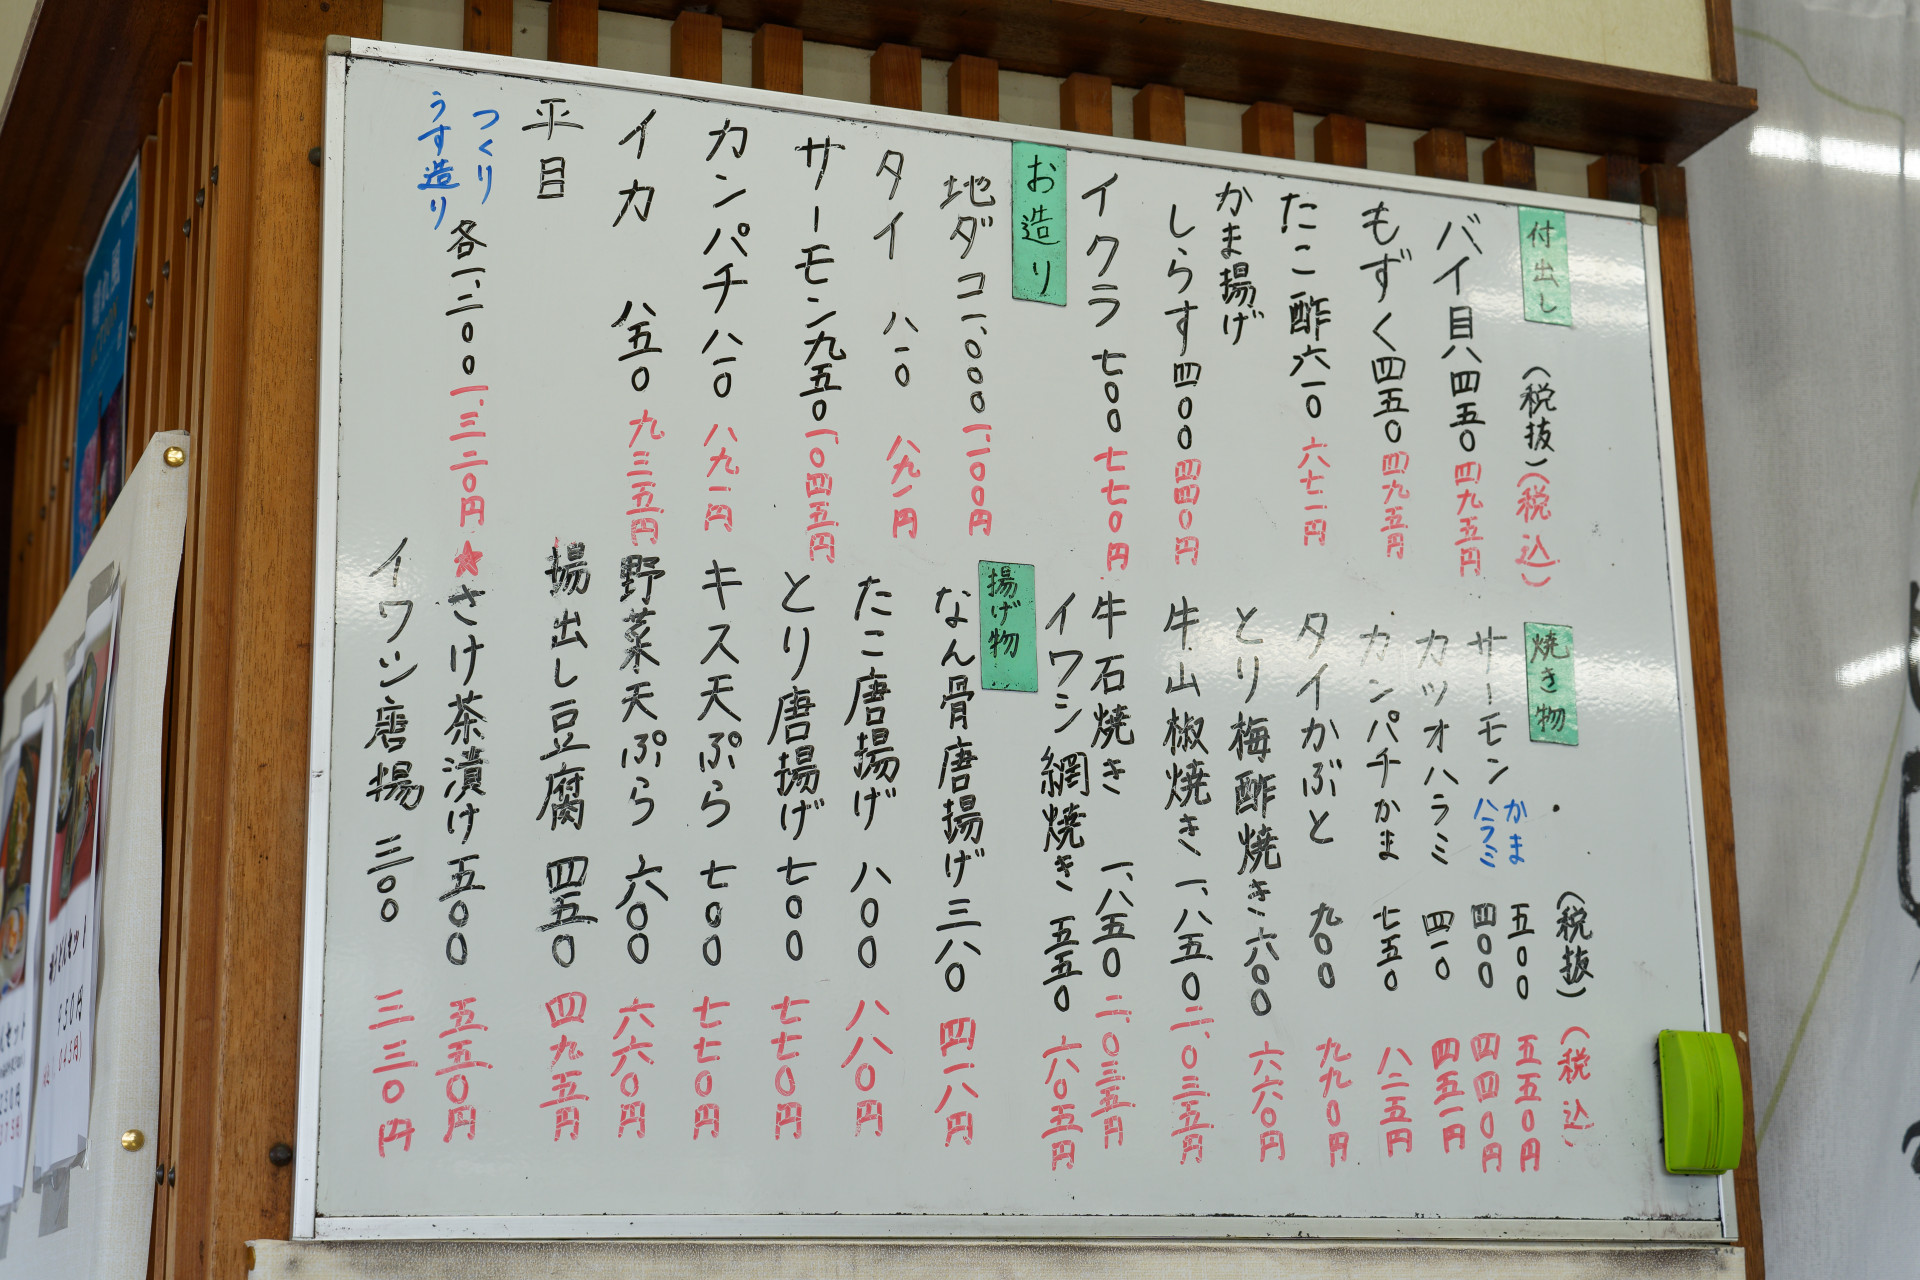 付出し （税抜）（税込）
バイ貝 四五〇 四九五円
もずく 四五〇 四九五円
たこ酢 六一〇 六七一円
かま揚げ
しらす 四〇〇 四四〇円
イクラ 七〇〇 七七〇円
お造り
地ダコ 一、〇〇〇 一、一〇〇円
タイ 八一〇 八九一円
サーモン 九五〇 一、〇四五円
カンパチ 八一〇 八九一円
イカ 八五〇 九三五円
平目
つくり
うす造り
各一、二〇〇 一、三二〇円
焼き物 （税抜）（税込）
サーモン かま 五〇〇 五五〇円
ハラミ 四〇〇 四四〇円
カツオハラミ 四一〇 四五一円
カンパチかま 七五〇 八二五円
タイかぶと 九〇〇 九九〇円
とり梅酢焼き 六〇〇 六六〇円
牛山椒焼き 一、八五〇 二、〇三五円
牛石焼き 一、八五〇 二、〇三五円
イワシ網焼き 五五〇 六〇五円
揚げ物
なん骨唐揚げ 三八〇 四一八円
たこ唐揚げ 八〇〇 八八〇円
とり唐揚げ 七〇〇 七七〇円
キス天ぷら 七〇〇 七七〇円
野菜天ぷら 六〇〇 六六〇円
揚出し豆腐 四五〇 四九五円
★さけ茶漬け 五〇〇 五五〇円
イワシ唐揚 三〇〇 三三〇円